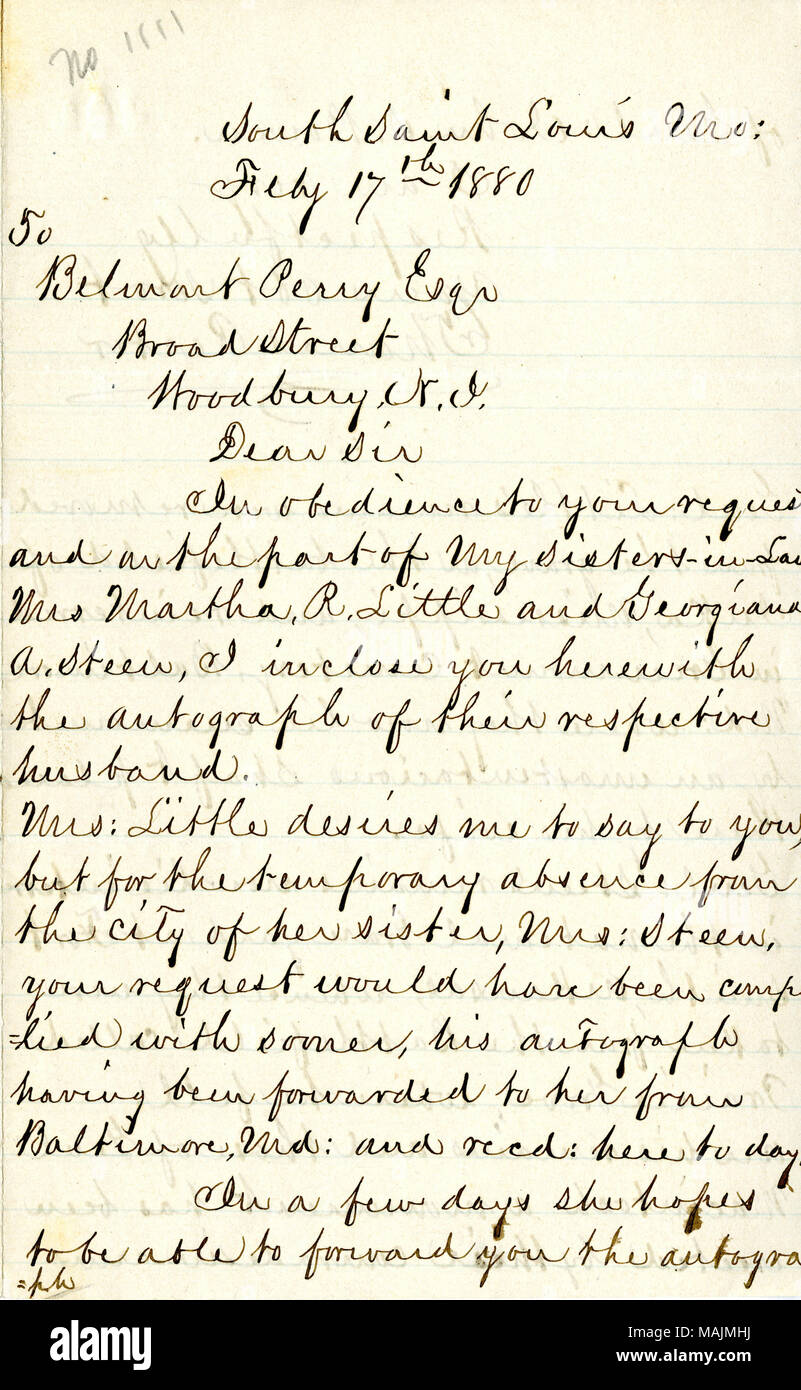 No 1111
South Saint Louis Mo:
Feby 17th 1880
To
Belmont Perry Esqr
Broad Street
Woodbury, N. J.
Dear Sir
In obedience to your reques
and on the part of My Sisters-in-Law
Mrs Martha, R. Little and Georgiana
A. Steen, I inclose you herewith
the autograph of their respective
husband.
Mrs: Little desires me to say to you,
but for the temporary absence from
the city of her sister, Mrs: Steen,
your request would have been comp
=lied with sooner, his autograph
having been forwarded to her from
Baltimore, Md: and recd: here to day,
In a few days she hopes
to be able to forward you the autogra
=ph
alamy
Image ID: MAJMHJ
www.alamy.com